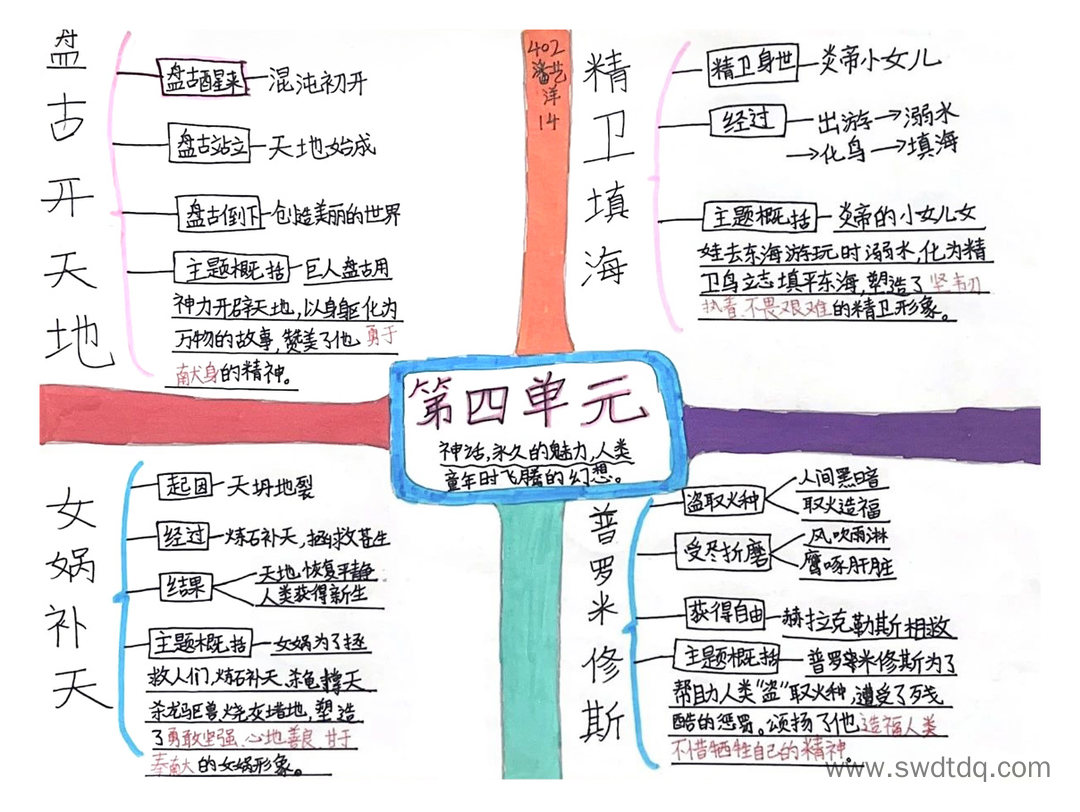 盘古开天地
盘古醒来 混沌初开
盘古站立 天地始成
盘古倒下 创造美丽的世界
主题概括 巨人盘古用
神力开辟天地,以身躯化为
万物的故事,赞美了他勇于
献身的精神。
402
潘艺
洋
14
精卫填海
精卫身世 炎帝小女儿
经过 出游→溺水
→化鸟→填海
主题概括 炎帝的小女儿女
娃去东海游玩时溺水,化为精
卫鸟立志填平东海,塑造了坚韧
执着、不畏艰难的精卫形象。
第四单元
神话,永久的魅力,人类
童年时飞腾的幻想。
女娲补天
起因 天坍地裂
经过 炼石补天,拯救苍生
结果 天地恢复平静
人类获得新生
主题概括 女娲为了拯
救人们,炼石补天、杀龟撑天
杀龙驱兽,烧灰堵地,塑造
了勇敢坚强、心地善良、甘于
奉献的女娲形象。
普罗米修斯
盗取火种 人间黑暗
取火造福
受尽折磨 风吹雨淋
鹰啄肝脏
获得自由 赫拉克勒斯相救
主题概括 普罗米修斯为了
帮助人类“盗”取火种,遭受了残
酷的惩罚。颂扬了他造福人类
不惜牺牲自己的精神。
www.swdtdq.com